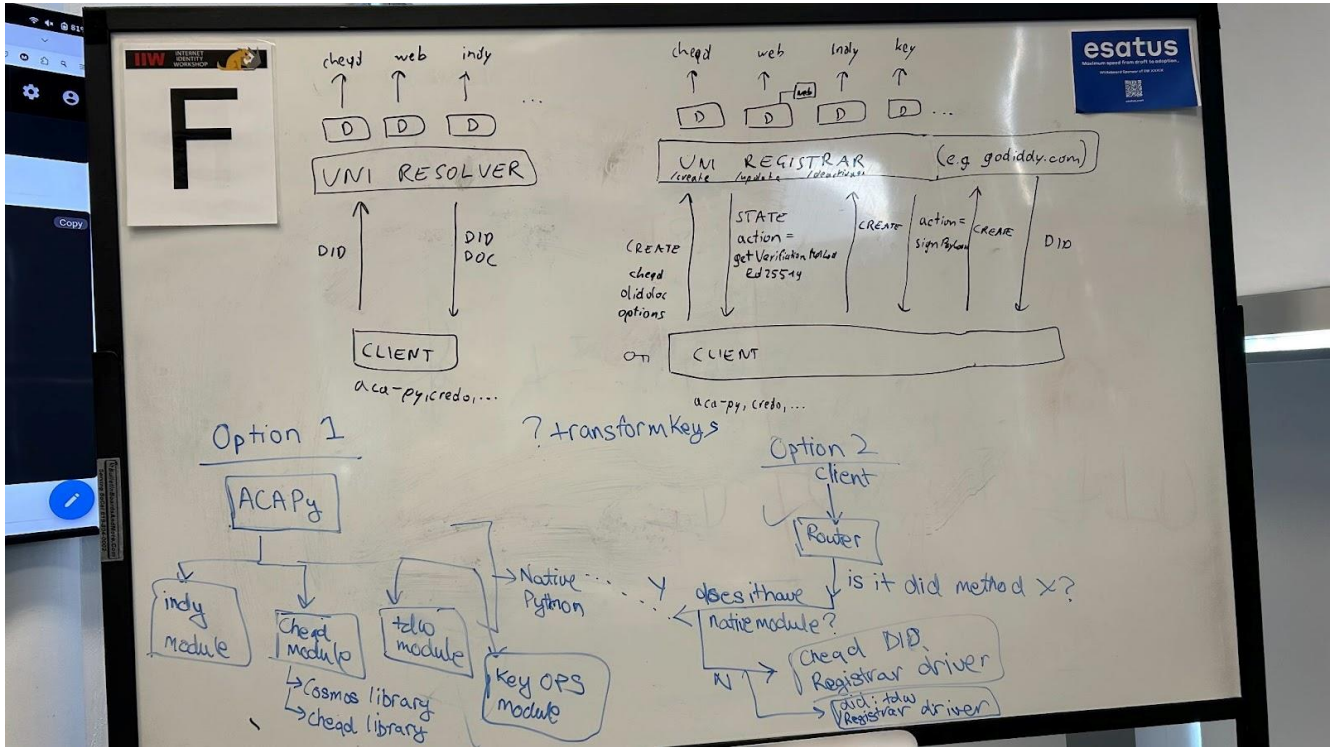 81
Copy
IIW INTERNET
IDENTITY
WORKSHOP
F
cheqd web indy
D D D ...
UNI RESOLVER
DID
DID
DOC
CLIENT
aca-py, credo, ...
cheqd web Indy key
web
D D D D ...
UNI REGISTRAR (e.g godiddy.com)
/create /update /deactivate
CREATE
cheqd
diddoc
options
STATE
action =
getVerifiationMethod
Ed25519
CREATE
action =
signPayload
CREATE
DID
CLIENT
aca-py, credo, ...
esatus
Maximum speed from draft to adoption.
? transformKeys
Option 1
ACAPy
indy
module
Cheqd
module
Cosmos library
cheqd library
tdw
module
Native
Python
Key OPS
module
Option 2
Client
Router
is it did method X?
does it have
native module?
Y
N
Cheqd DID
Registrar driver
did:tdw
Registrar driver